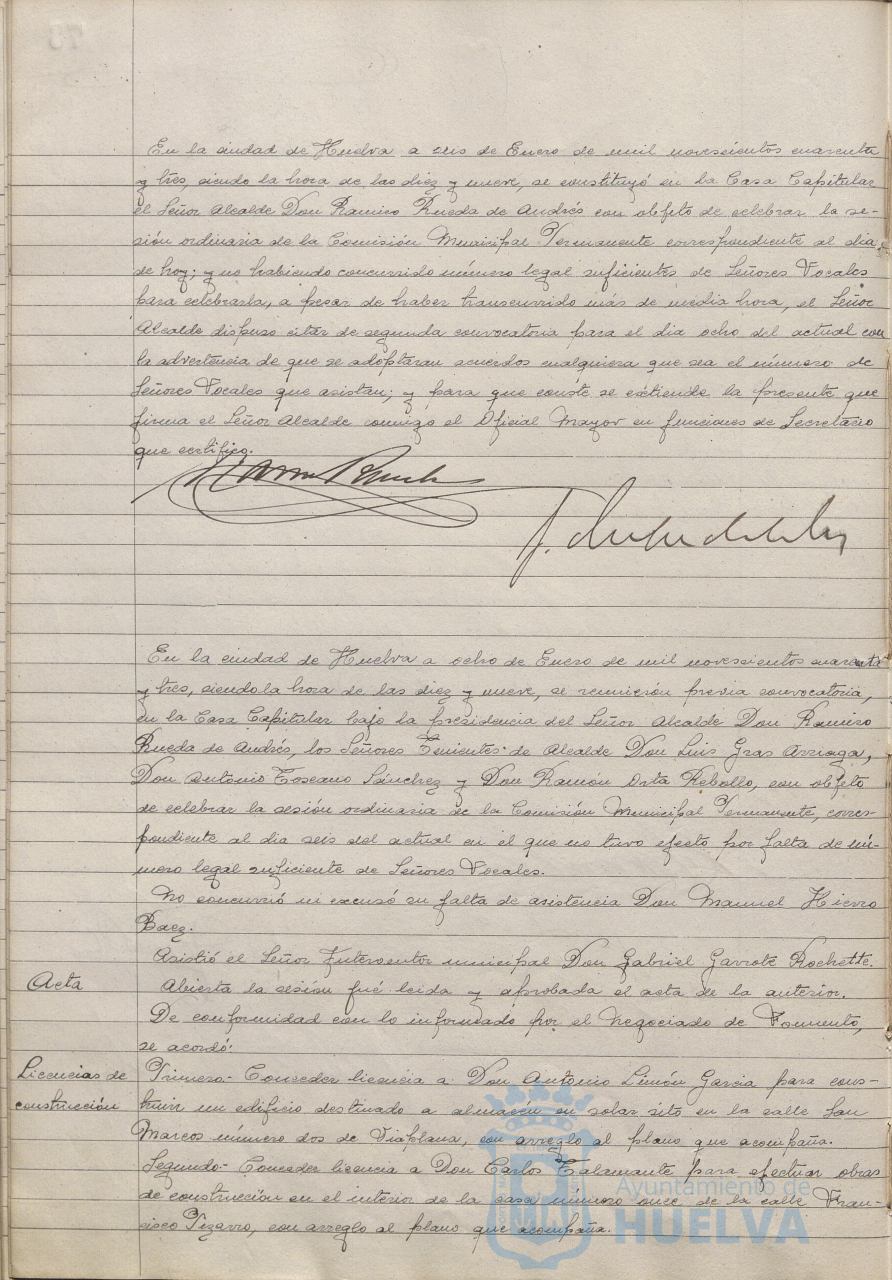 En la ciudad de Huelva a seis de Enero de mil novescientos cuarenta
y tres, siendo la hora de las diez y nueve, se constituyó en la Casa Capitular
el Señor Alcalde Don Ramiro Rueda de Andrés con objeto de celebrar la se-
sión ordinaria de la Comisión Municipal Permanente correspondiente al dia
de hoy; y no habiendo concurrido número legal suficientes de Señores Vocales
para celebrarla, a pesar de haber transcurrido más de media hora, el Señor
Alcalde dispuso citar de segunda convocatoria para el dia ocho del actual con
la advertencia de que se adoptaran acuerdos cualquiera que sea el número de
Señores Vocales que asistan; y para que conste se extiende la presente que
firma el Señor Alcalde conmigo el Oficial Mayor en funciones de Secretario
que certifico.
En la ciudad de Huelva a ocho de Enero de mil novescientos cuarenta
y tres, siendo la hora de las diez y nueve, se reunieron previa convocatoria,
en la Casa Capitular bajo la presidencia del Señor Alcalde Don Ramiro
Rueda de Andrés, los Señores Tenientes de Alcalde Don Luis Gras Arriaga,
Don Antonio Toscano Sánchez y Don Ramón Orta Rebollo, con objeto
de celebrar la sesión ordinaria de la Comisión Municipal Permanente, corres-
pondiente al dia seis del actual en el que no tuvo efecto por falta de nú-
mero legal suficiente de Señores Vocales.
No concurrió ni excusó su falta de asistencia Don Manuel Hierro
Baez.
Asistió el Señor Interventor municipal Don Gabriel Garrote Rochette.
Acta
Abierta la sesión fué leida y aprobada el acta de la anterior.
De conformidad con lo informado por el Negociado de Fomento,
se acordó:
Licencias de
construcción
Primero- Conceder licencia a Don Antonio Limón Garcia para cons-
truir un edificio destinado a almacén en solar sito en la calle San
Marcos número dos de Viaplana, con arreglo al plano que acompaña.
Segundo- Conceder licencia a Don Carlos Talamante para efectuar obras
de construcción en el interior de la casa número once de la calle Fran-
cisco Pizarro, con arreglo al plano que acompaña.
Ayuntamiento de
HUELVA